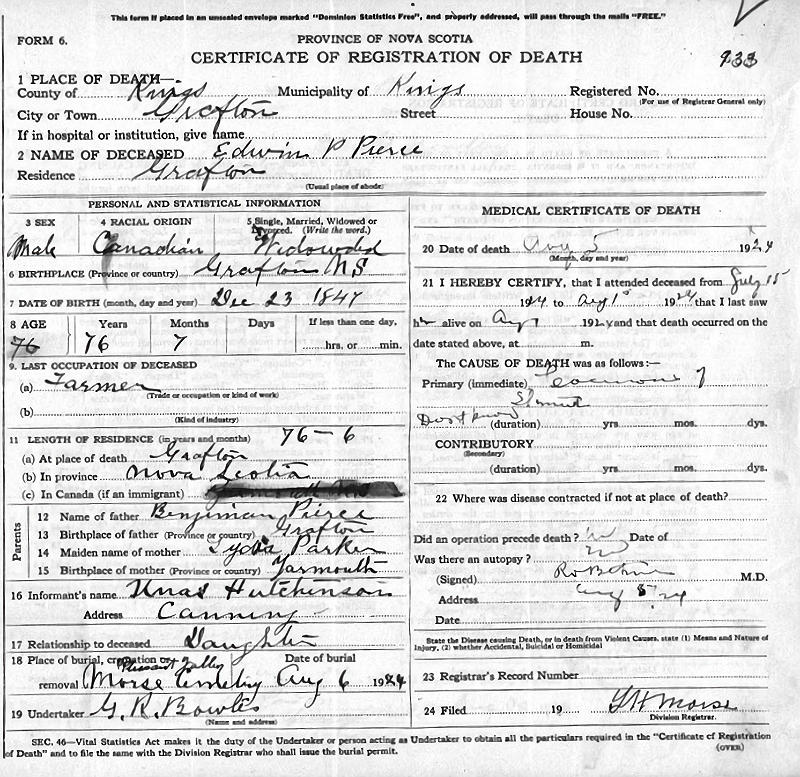 This form if placed in an unsealed envelope marked "Dominion Statistics Free", and properly addressed, will pass through the mails "FREE."
FORM 6.
PROVINCE OF NOVA SCOTIA
CERTIFICATE OF REGISTRATION OF DEATH
933
1 PLACE OF DEATH—
County of Kings Municipality of Kings Registered No.
(For use of Registrar General only)
City or Town Grafton Street House No.
If in hospital or institution, give name
2 NAME OF DECEASED Edwin P Pierce
Residence Grafton
(Usual place of abode)
PERSONAL AND STATISTICAL INFORMATION
3 SEX 4 RACIAL ORIGIN 5 Single, Married, Widowed or Divorced. (Write the word.)
Male Canadian Widowded
6 BIRTHPLACE (Province or country) Grafton NS
7 DATE OF BIRTH (month, day and year) Dec 23 1847
8 AGE Years Months Days If less than one day,
76 76 7 hrs. or min.
9. LAST OCCUPATION OF DECEASED
(a) Farmer
(Trade or occupation or kind of work)
(b)
(Kind of industry)
11 LENGTH OF RESIDENCE (in years and months) 76-6
(a) At place of death Grafton
(b) In province Nova Scotia
(c) In Canada (if an immigrant)
Parents
12 Name of father Benjiman Pierce
13 Birthplace of father (Province or country) Grafton
14 Maiden name of mother Lydia Parker
15 Birthplace of mother (Province or country) Yarmouth
16 Informant's name Hutchinson
Address Canning
17 Relationship to deceased Daughter
18 Place of burial, cremation or Date of burial
Plesant Valley
removal Morse Cemetry Aug 6 1924
19 Undertaker G. R. Bowles
(Name and address)
MEDICAL CERTIFICATE OF DEATH
20 Date of death Aug 5 1924
(Month, day and year)
21 I HEREBY CERTIFY, that I attended deceased from July 15
1924 to Aug 1st 1924 that I last saw
h alive on Aug 1 1924 and that death occurred on the
date stated above, at m.
The CAUSE OF DEATH was as follows:—
Primary (immediate)
(duration) yrs. mos. dys.
CONTRIBUTORY
(Secondary)
(duration) yrs. mos. dys.
22 Where was disease contracted if not at place of death?
Did an operation precede death? no Date of
Was there an autopsy? no
(Signed) M.D.
Address Aug 5 24
Date
State the Disease causing Death, or in death from Violent Causes, state (1) Means and Nature of
Injury, (2) whether Accidental, Suicidal or Homicidal
23 Registrar's Record Number
24 Filed 19 Morse
Division Registrar.
SEC. 46—Vital Statistics Act makes it the duty of the Undertaker or person acting as Undertaker to obtain all the particulars required in the "Certificate of Registration
of Death" and to file the same with the Division Registrar who shall issue the burial permit.
(OVER)